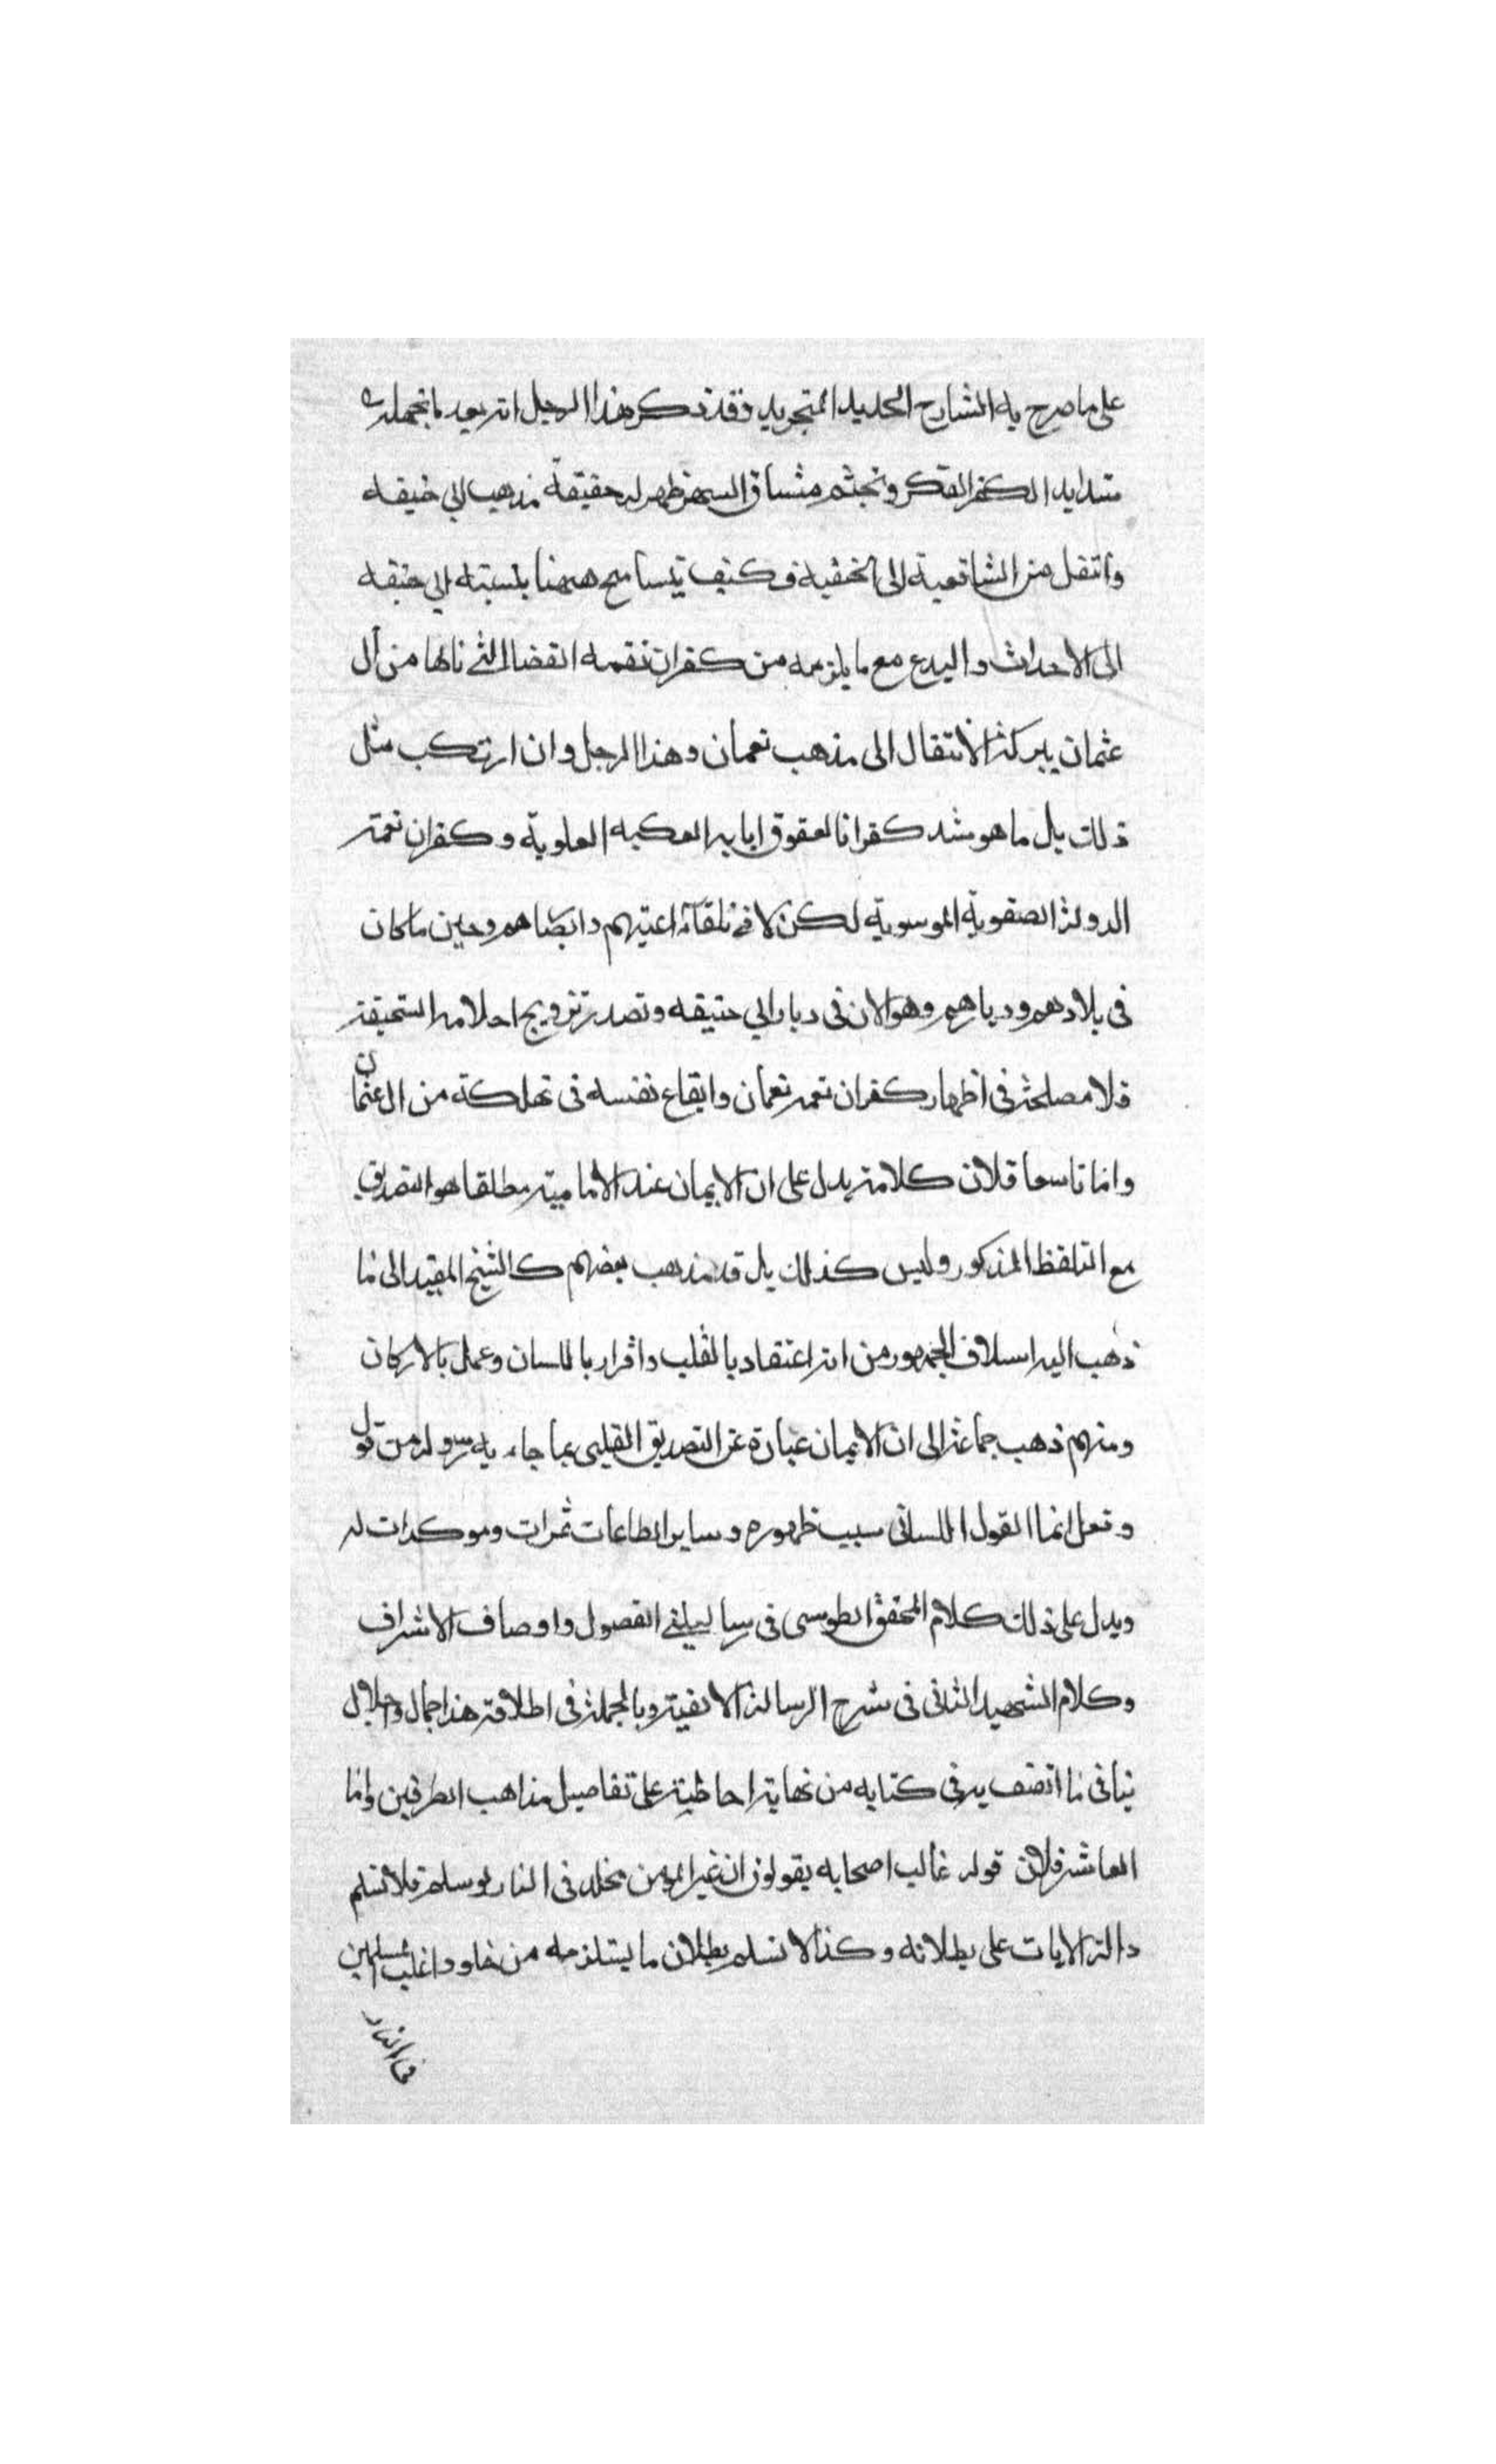 على ما صرح به الشارح الجديد للتجريد وقد ذكر هذا الرجل انه بعد ما تحمله
شدايد الكفر الفكر وتجشم مشاق السهر ظهر له حقيقة مذهب ابي حنيفه
وانتقل من الشافعية الى الحنفية فكيف يتسامح ههنا بنسبته ابي حنيفه
الى الاحداث والبدع مع ما يلزمه من كفران نقمه القضا التي نالها من آل
عثمان ببركة الانتقال الى مذهب نعمان وهذا الرجل وان ارتكب مثل
ذلك بل ما هو شد كفرانا لعقوق ابايه العكبه العلوية وكفران نعمة
الدولة الصفوية الموسوية لكن لا في تلقاء اعينهم وابصاهم وحين ما كان
فى بلادهم ودياهم وهو الان فى ديار ابي حنيفه وتصدر ترويج احلامه السخيفة
فلا مصلحة فى اظهار كفران نعمه نعمان وايقاع نفسه فى تهلكة من ال عثمان
واما تاسعا فلان كلامه يدل على ان الايمان عند الامامية مطلقا هو التصديق
مع التلفظ المذكور وليس كذلك بل قد مذهب بعضهم كالشيخ المفيد الى ما
ذهب اليه اسلاف الجمهور من انه اعتقاد بالقلب واقرار باللسان وعمل بالاركان
ومنهم ذهب جماعة الى ان الايمان عبارة عن التصديق القلبي بما جاء به رسوله من قول
وفعل انما القول اللسانى سبب ظهوره وساير الطاعات ثمرات وموكدات له
ويدل على ذلك كلام المحقق الطوسى فى رسالتيه الفصول واوصاف الاشراف
وكلام الشهيد الثانى فى شرح الرسالة الالفية وبالجملة فى اطلاقه هذا اجمال واخلال
ينافى ما اتصف به فى كتابه من نهاية احاطته على تفاصيل مذاهب الطرفين واما
العاشر فلان قوله غالب اصحابه يقولون ان غير المومن مخلد فى النار لو سلم فلا نسلم
دالة الايات على بطلانه وكذا لا نسلم بطلان ما يستلزمه من خلود اغلب المسلمين
فى النار